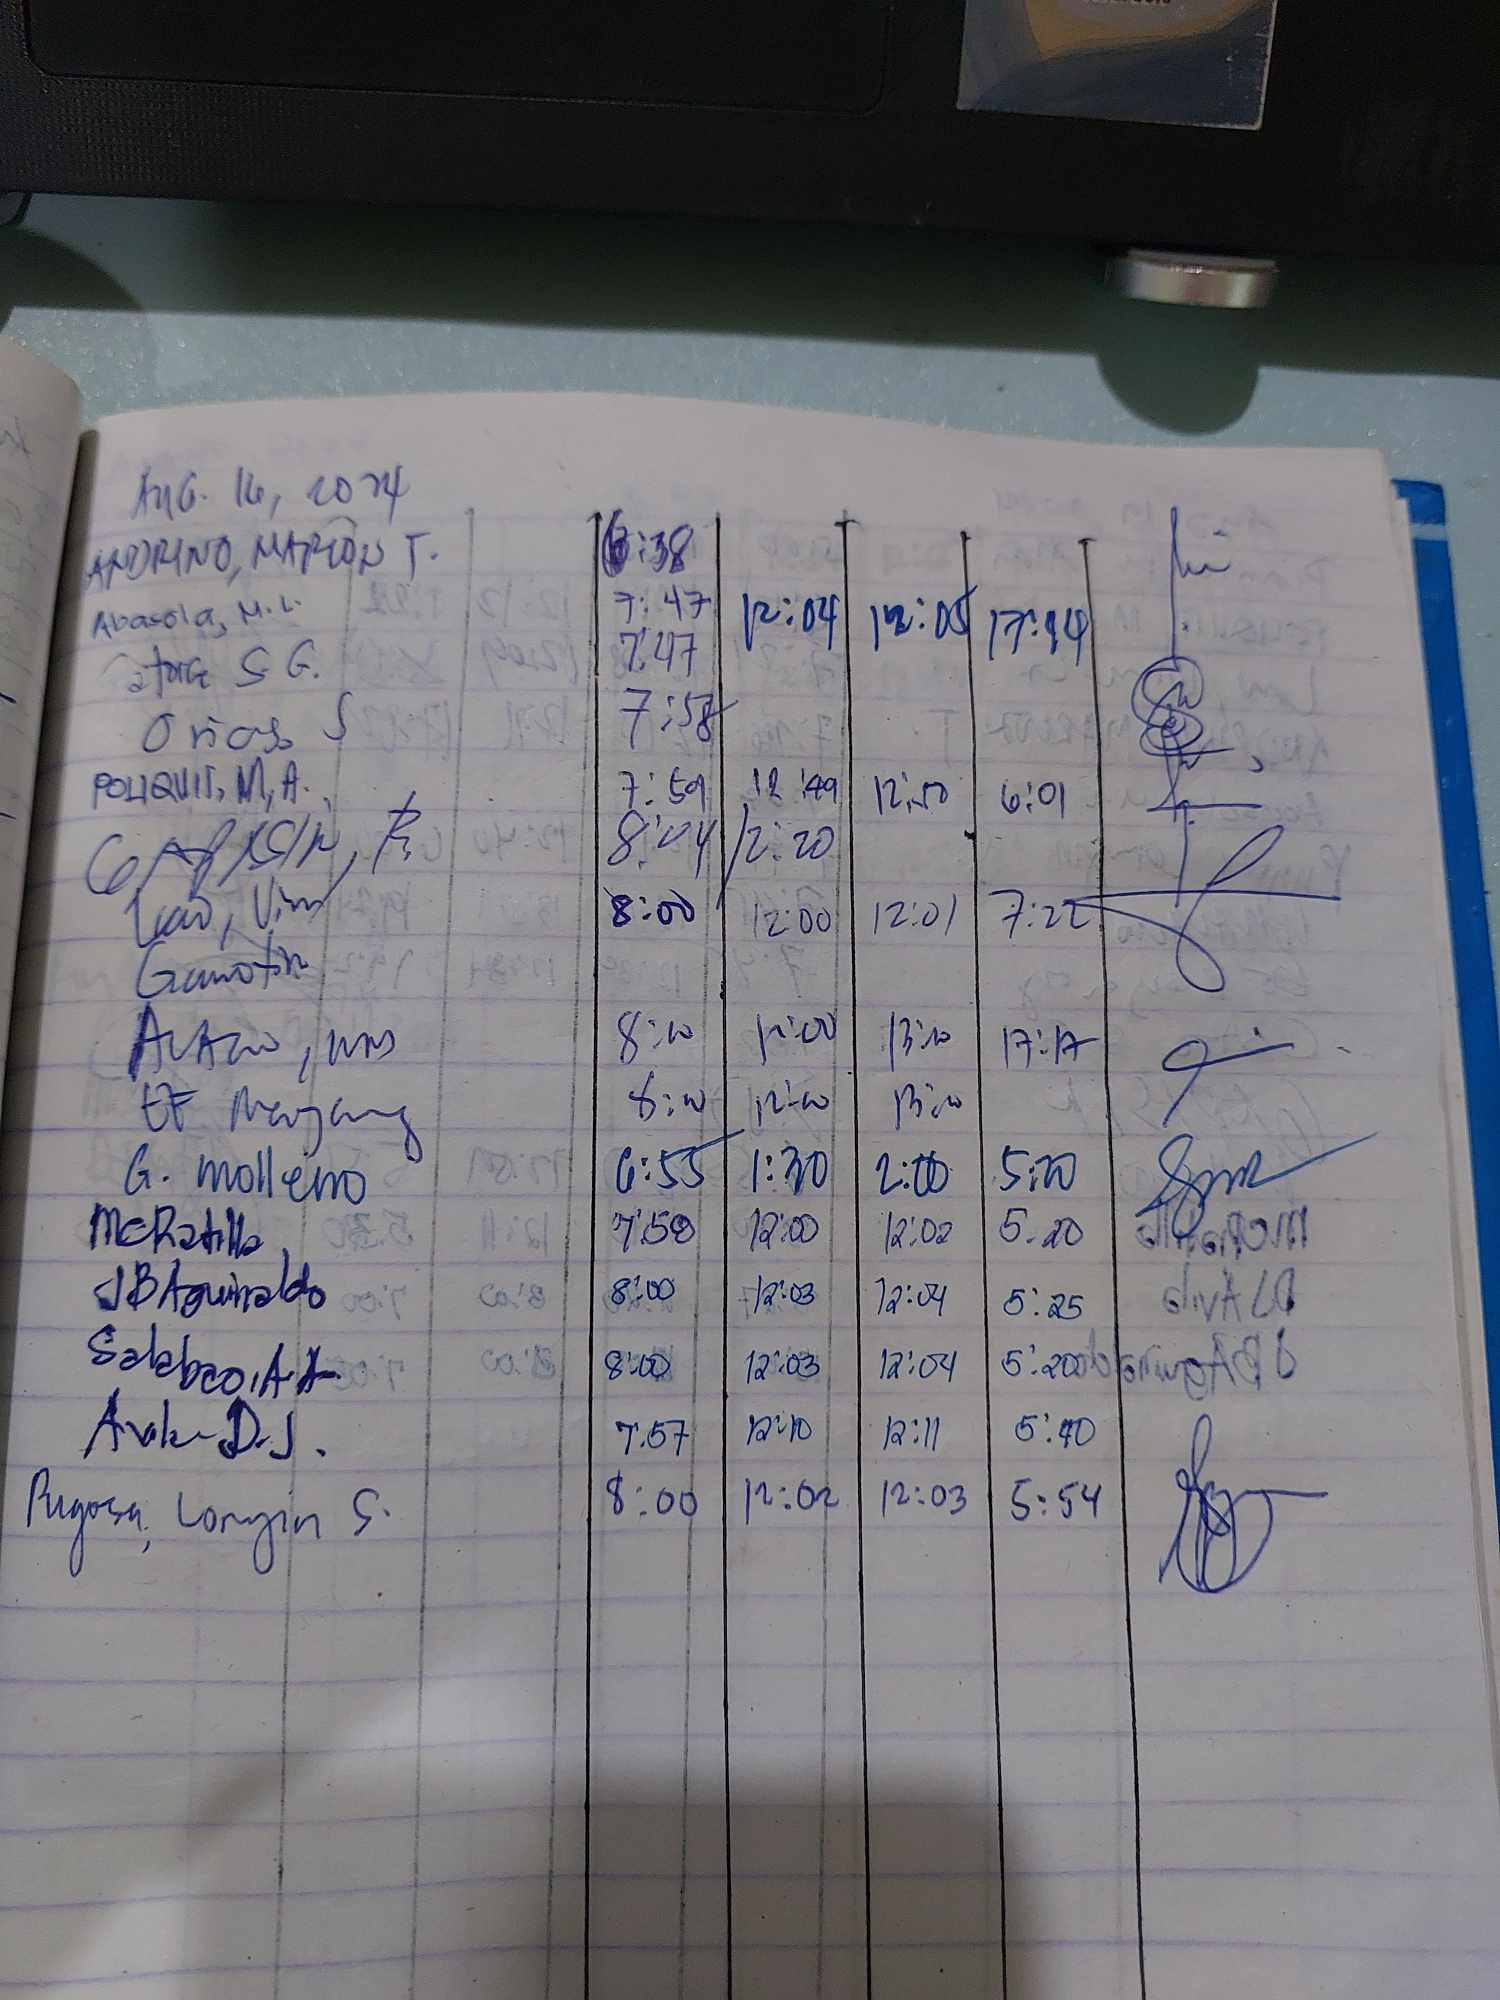 AUG. 16, 2024
ANDRINO, MARLON T. 6:38
Abasola, M.L. 7:47 12:04 12:05 17:44
S G. 7:47
Orias, S 7:58
POLIQUIT, M, A. 7:59 12:49 12:50 6:01
8:04 12:20
Lao, 8:00 12:00 12:01 7:22
Gamotin
8:00 12:00 13:00 17:17
EF 8:00 12:00 13:00
G. Molleno 6:55 1:30 2:00 5:20
MCRatilla 7:58 12:00 12:02 5:20
JBAguinaldo 8:00 12:03 12:04 5:25
Salabao, A.A. 8:00 12:03 12:04 5:20
Avila D.J. 7:57 12:10 12:11 5:40
Pugosa, Longin S. 8:00 12:02 12:03 5:54